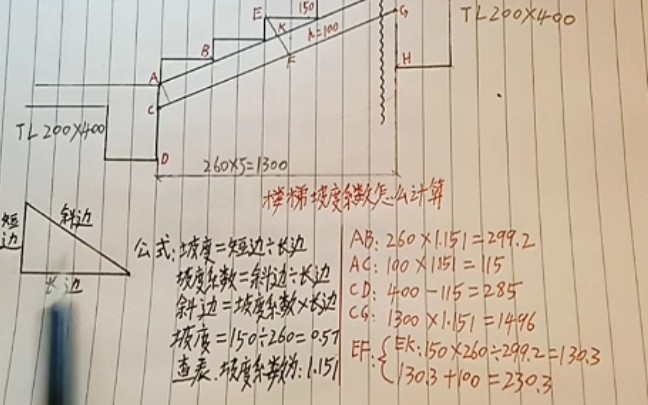 E
150
K
G
TL200×400
B
h=100
F
H
A
C
TL200×400
D
260×5=1300
楼梯坡度系数怎么计算
短边
斜边
长边
公式:坡度=短边÷长边
坡度系数=斜边÷长边
斜边=坡度系数×长边
坡度=150÷260=0.57
查表.坡度系数为:1.151
AB:260×1.151=299.2
AC:100×1151=115
CD:400-115=285
CG:1300×1.151=1496
EF:{EK:150×260÷299.2=130.3
130.3+100=230.3